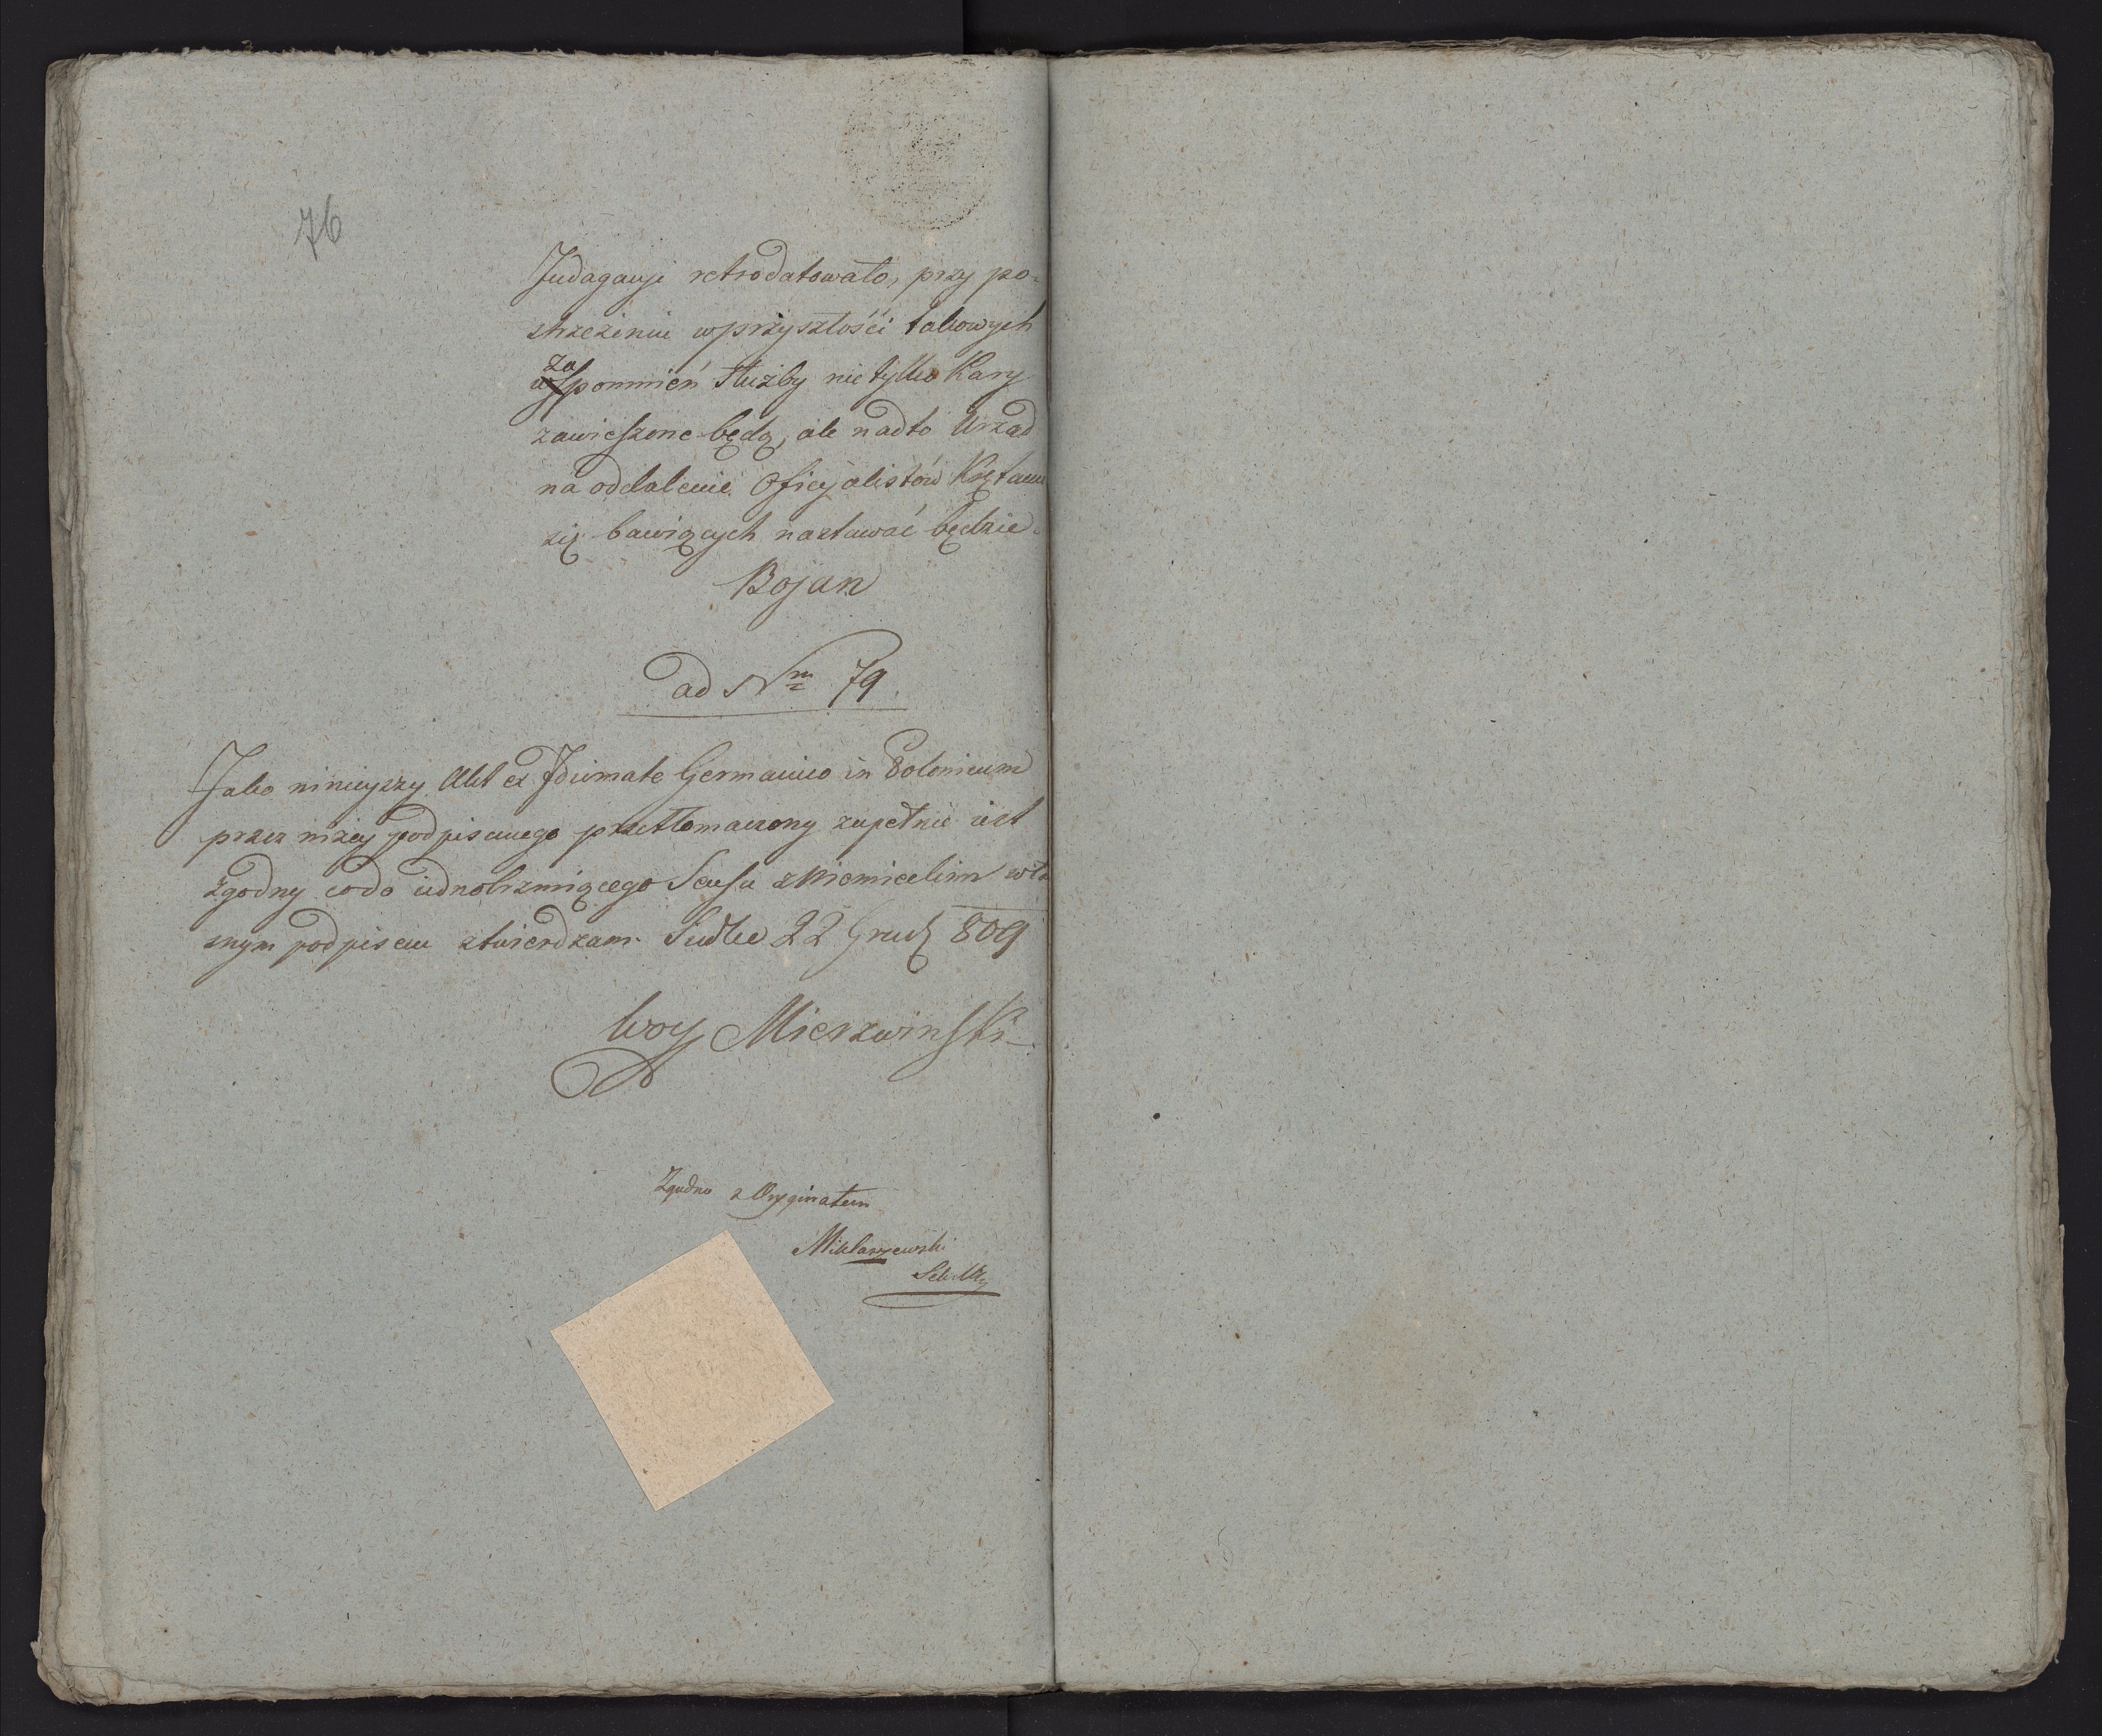 76
Indagacyi retrodatowało, przy po-
strzeżeniu wprzyszłości takowych
za
pomnień Służby nie tylko Kary
zawieszone będą, ale nadto Urząd
na oddalenie Oficyalistów
się bawiących nastawać będzie.
Bojan
ad Nm 79.
Jako ninieyszy Akt ex Idiomate Germanico in Polonicum
przez niżej podpisanego przetłomaczony zupełnie iest
zgodny codo iednobrzmiącego Sensu zNiemieckim wła
snym podpisem stwierdzam. Siedlce 22 Grud 809
Woy Mierzwinski
Zgodno z Oryginałem
Miklaszewski